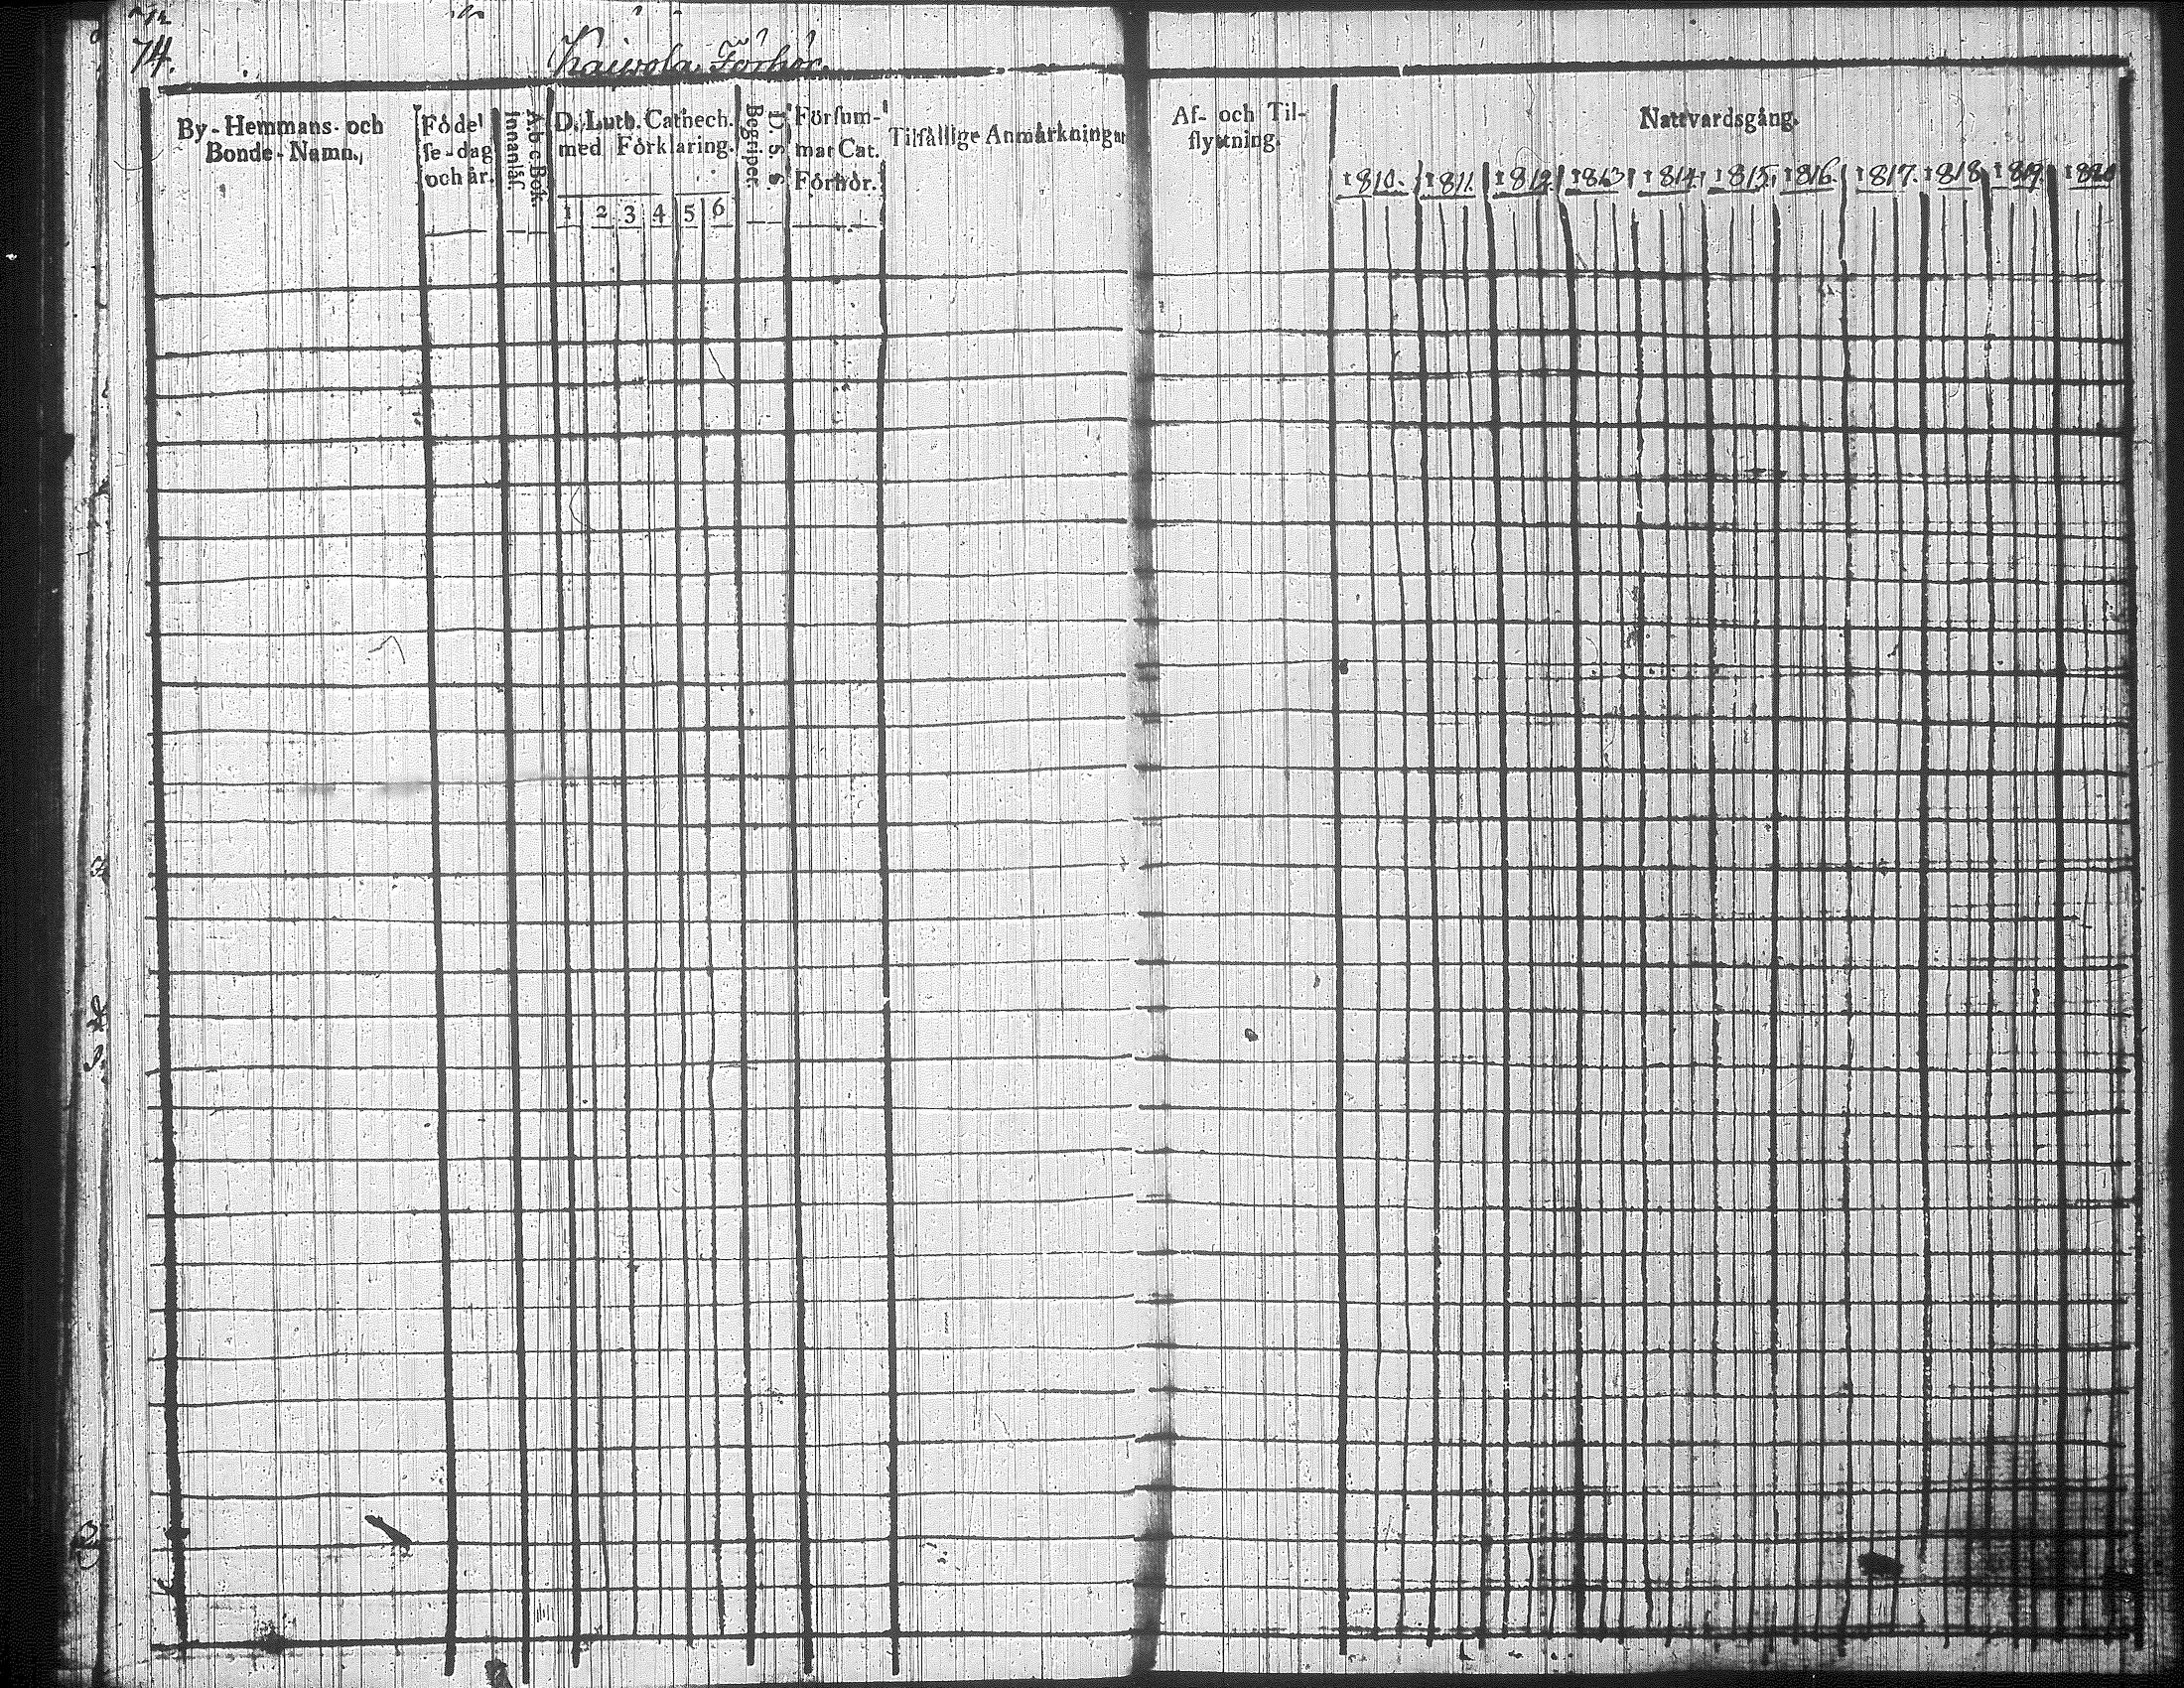 74.
Kaivola Förhör.
By-Hemmans- och
Bonde-Namn.
Födel
se-dag
och år.
A.b.c. Bok.
Innanläs.
D. Luth. Cathech.
med Förklaring.
1 2 3 4 5 6
D. S. S.
Begriper.
Försum-
mat Cat.
Förhör.
Tilfällige Anmärkningar
Af- och Til-
flyttning.
Nattvardsgång.
1810. 1811. 1812. 1813 1814. 1815. 1816. 1817. 1818. 1819. 1820